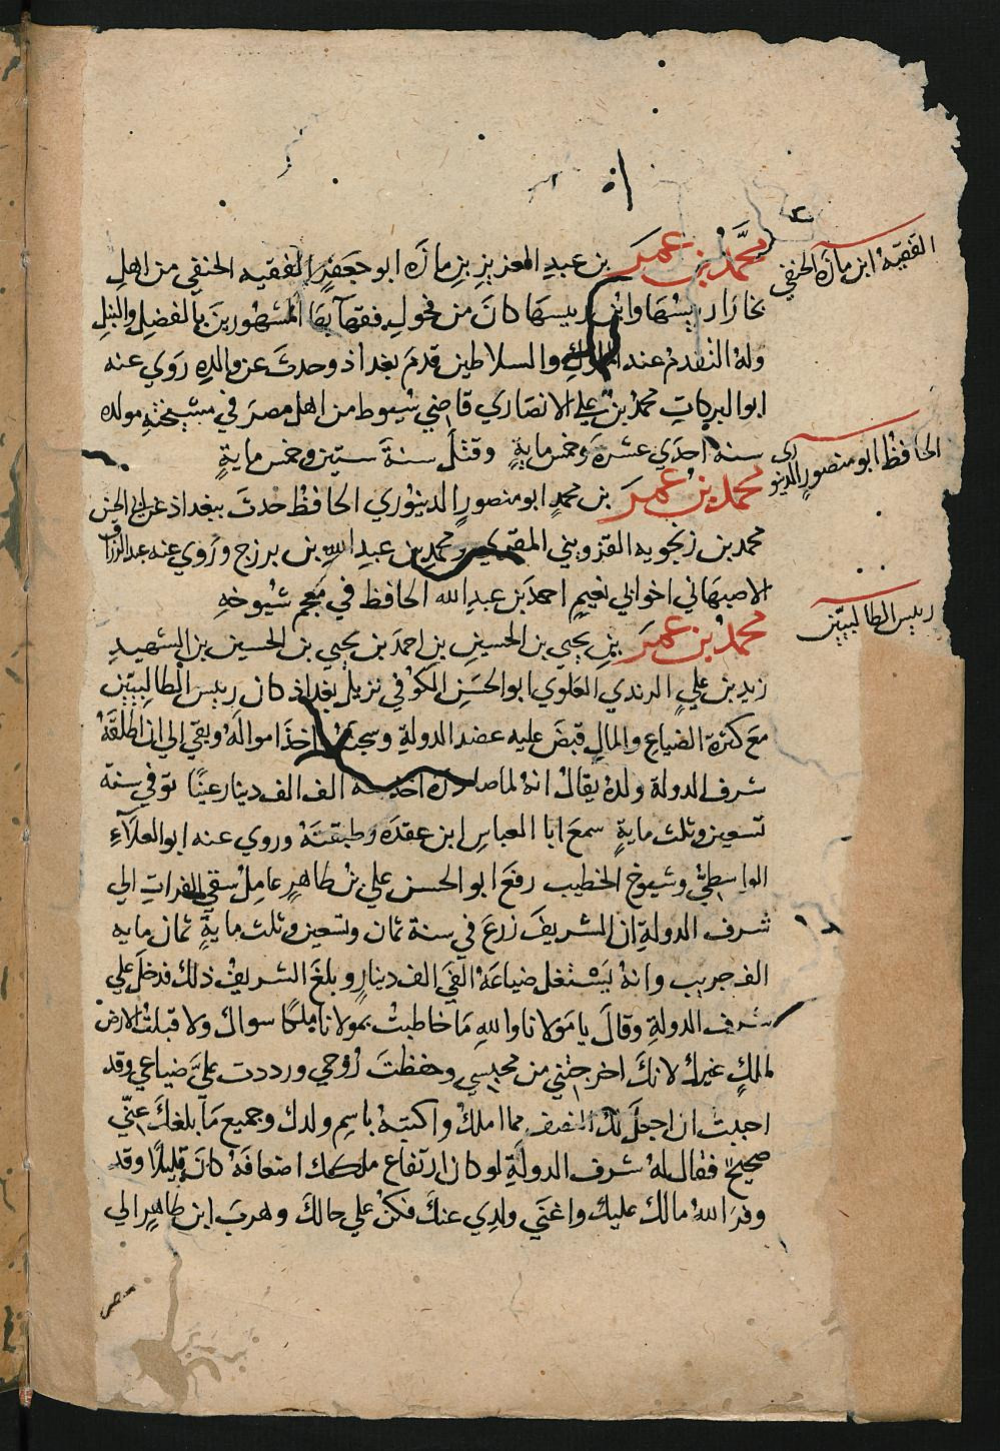 الفقيه ابن مازه الحنفي
محمد بن عمر بن عبد العزيز بن مازه ابو جعفر الفقيه الحنفي من اهل
بخارا رييسها وابن رييسها كان من فحول فقهآيها المشهورين بالفضل والنبل
وله التقدم عند الملوك والسلاطين قدم بغداذ وحدث عن والده روي عنه
ابوالبركات محمد بن علي الانصاري قاضي سيوط من اهل مصر في مشيخته مولده
سنه احدي عشرة وخمس ماية وقتل سنة ستين وخمس ماية
الحافظ ابو منصور الدينوري
محمد بن عمر بن محمد ابو منصور الدينوري الحافظ حدث ببغداذ عن ابي الحسن
محمد بن زنجويه القزويني المقري ومحمد بن عبد الله بن برزج وروي عنه عبد الرزاق
الاصبهاني اخو ابي نعيم احمد بن عبد الله الحافظ في معجم شيوخه
رييس الطالبيين
محمد بن عمر بن يحيي بن الحسين بن احمد بن يحيي بن الحسين بن الشهيد
زيد بن علي الزيدي العلوي ابو الحسن الكوفي نزيل بغداذ كان رييس الطالبيين
مع كثرة الضياع والمال قبض عليه عضد الدولة وسجنه واخذ امواله وبقي الي ان اطلقه
شرف الدولة ولده يقال انه لما صادره اخذ منه الف الف دينار عينا توفي سنة
تسعين وثلث ماية سمع ابا العباس ابن عقده وطبقته وروي عنه ابو العلآء
الواسطي وشيوخ الخطيب رفع ابو الحسن علي بن طاهر عامل سقي الفرات الي
شرف الدولة ان الشريف زرع في سنة ثمان وتسعين وثلث ماية ثمان مايه
الف جريب وانه يستغل ضياعه الفي الف دينار وبلغ الشريف ذلك فدخل علي
شرف الدولة وقال يا مولانا والله ما خاطبت بمولانا ملكا سواك ولا قبلت الارض
لملك غيرك لانك اخرجتني من محبسي وحفظت روحي ورددت علي ضياعي وقد
احببت ان اجعل لك النصف مما املك واكتبه باسم ولدك وجميع ما بلغك عني
صحيح فقال له شرف الدولة لو كان ارتفاع ملكك اضعافه كان قليلا وقد
وفر الله مالك عليك واغني ولدي عنك فكن علي حالك وهرب ابن طاهر الي
مصر